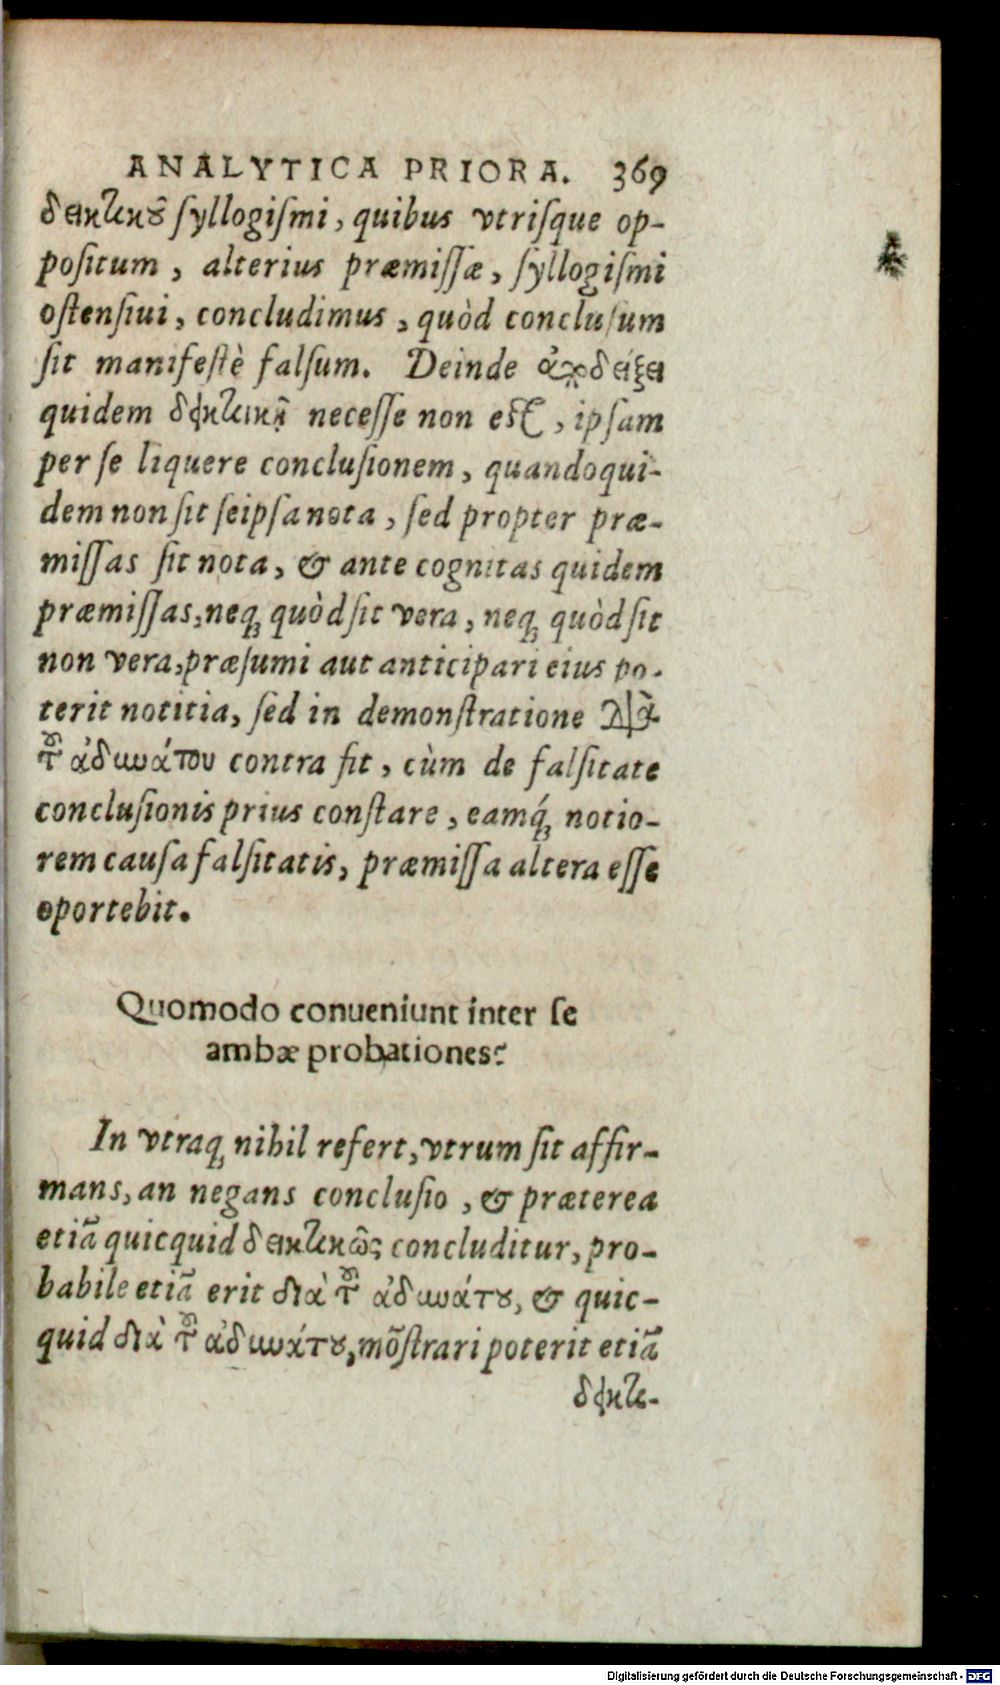 ANALYTICA PRIORA. 369
δεικτικοῦ syllogiſmi, quibus vtriſque op-
poſitum, alterius præmiſſæ, ſyllogiſmi
oſtenſiui, concludimus, quòd concluſum
ſit manifeſtè falſum. Deinde ἀποδείξει
quidem δεικτικῇ neceſſe non eſt, ipſam
per ſe liquere concluſionem, quandoqui-
dem non ſit ſeipſa nota, ſed propter præ-
miſſas ſit nota, & ante cognitas quidem
præmiſſas, neq; quòd ſit vera, neq; quòd ſit
non vera, præſumi aut anticipari eius po-
terit notitia, ſed in demonſtratione διὰ
τοῦ ἀδυνάτου contra fit, cùm de falſitate
concluſionis prius conſtare, eamq́; notio-
rem cauſa falſitatis, præmiſſa altera eſſe
oportebit.
Quomodo conueniunt inter ſe
ambæ probationes?
In vtraq; nihil refert, vtrum ſit affir-
mans, an negans concluſio, & præterea
etiã quicquid δεικτικῶς concluditur, pro-
babile etiã erit διὰ τοῦ ἀδυνάτου, & quic-
quid διὰ τοῦ ἀδυνάτου, mõſtrari poterit etiã
δεικτι-
Digitalisierung gefördert durch die Deutsche Forschungsgemeinschaft - DFG